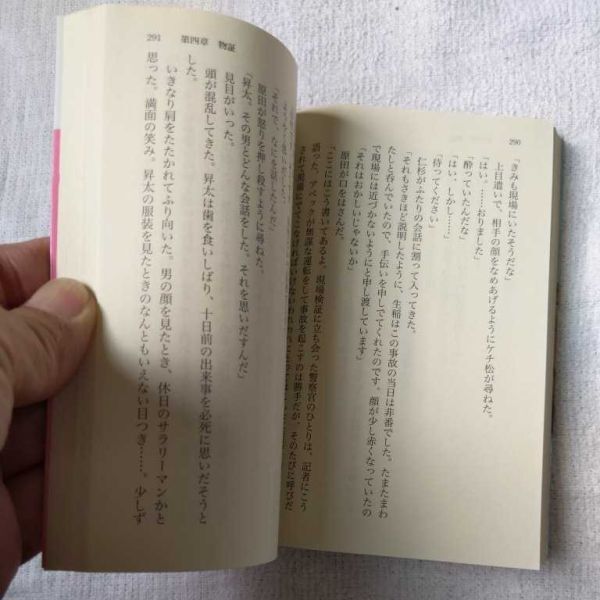 290
「きみも現場にいたそうだな」
上目遣いで、相手の顔をなめあげるようにケチ松が尋ねた。
「はい。……おりました」
「酔っていたんだな」
「はい、しかし……」
「待ってください」
仁杉がふたりの会話に割って入ってきた。
「それもさきほど説明したように、生稲はこの事故の当日は非番でした。たまたまわ
たしと呑んでいたので、手伝いを申しでてくれたのです。顔が少し赤くなっていたの
で現場には近づかないようにと申し渡しています」
「それはおかしいじゃないか」
原田が口をはさんだ。
「ここにはこう書いてあるよ。現場検証に立ち会った警察官のひとりは、記者にこう
語った。アベックが無謀な運転をして事故を起こすのは勝手だが、そのたびに呼びだ
されて現場にでてこなければいけない
291 第四章 物証
「それで、なにを話したんだ」
原田が怒りを押し殺すように尋ねた。
「昇太。その男とどんな会話をした。それを思いだすんだ」
見目がいった。
頭が混乱してきた。昇太は歯を食いしばり、十日前の出来事を必死に思いだそうと
した。
いきなり肩をたたかれてふり向いた。男の顔を見たとき、休日のサラリーマンかと
思った。満面の笑み。昇太の服装を見たときのなんともいえない目つき……。少しず